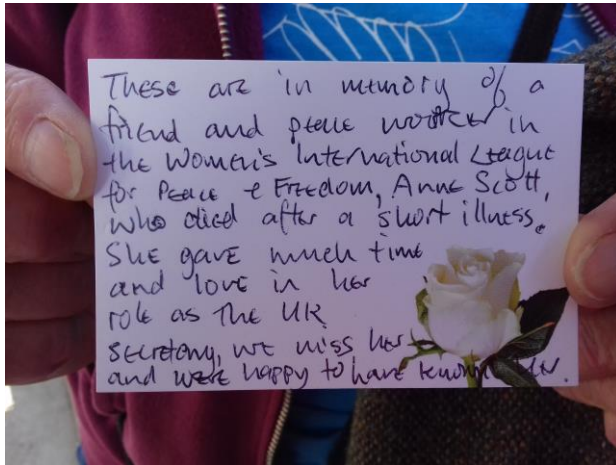 These are in memory of a
friend and peace worker in
the Women's International League
for Peace & Freedom, Anne Scott,
who died after a short illness.
She gave much time
and love in her
role as the UK
secretary, we miss her
and were happy to have known her.